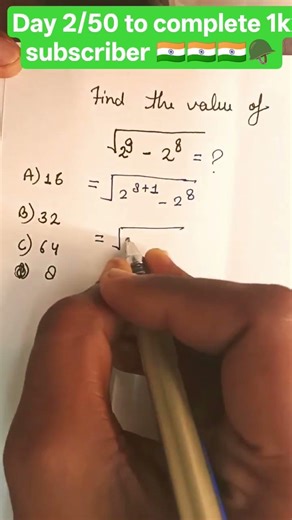 Day 2/50 to complete 1k
subscriber 🇮🇳🇮🇳🇮🇳🪖
Find the value of
√(2⁹ - 2⁸) = ?
A) 16
= √(2⁸⁺¹ - 2⁸)
B) 32
= √
C) 64
D) 8